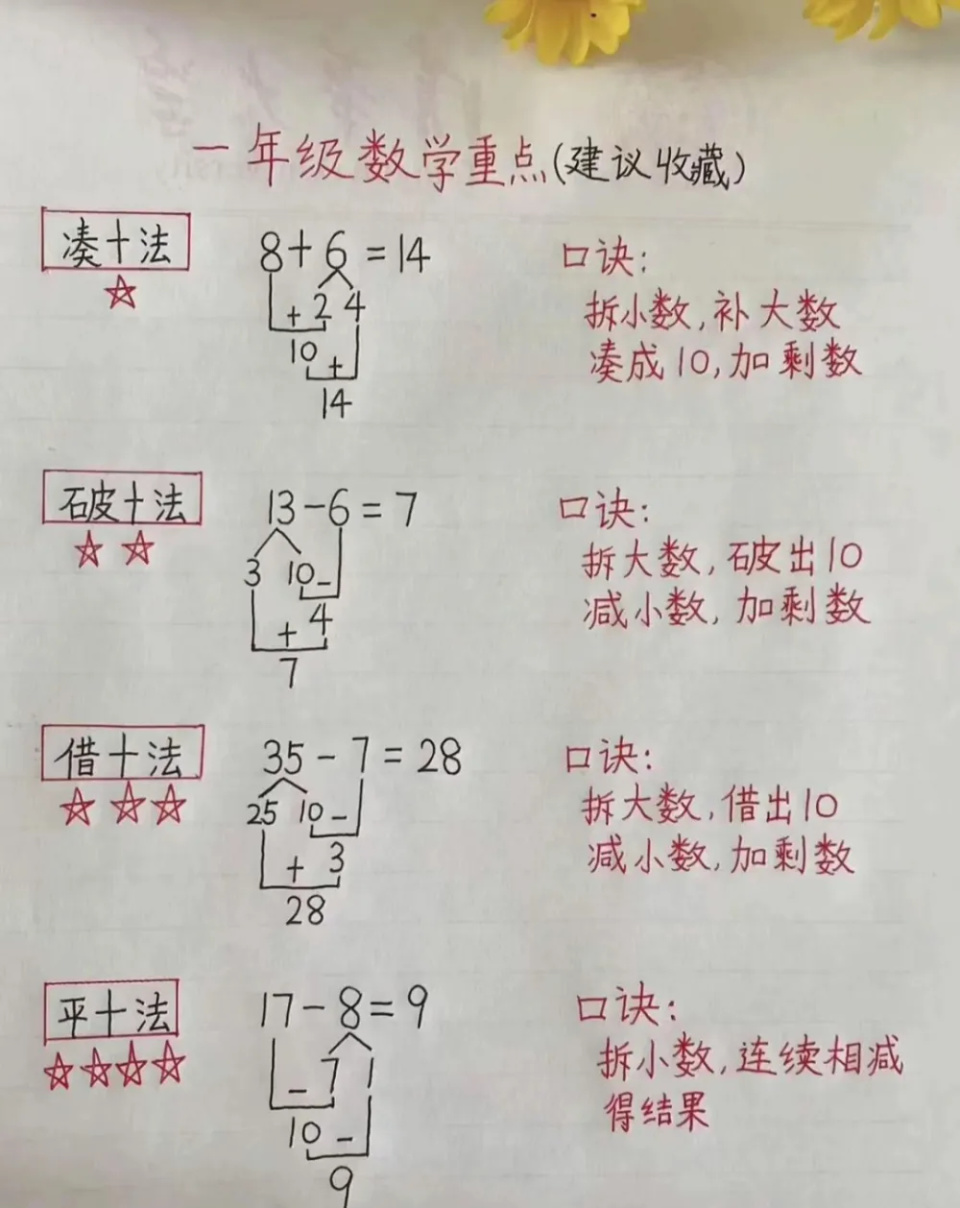 一年级数学重点(建议收藏)
凑十法
8+6=14
+ 2 4
10 +
14
口诀:
拆小数,补大数
凑成10,加剩数
破十法
13-6=7
3 10-
+ 4
7
口诀:
拆大数,破出10
减小数,加剩数
借十法
35-7=28
25 10-
+ 3
28
口诀:
拆大数,借出10
减小数,加剩数
平十法
17-8=9
- 7 1
10 -
9
口诀:
拆小数,连续相减
得结果